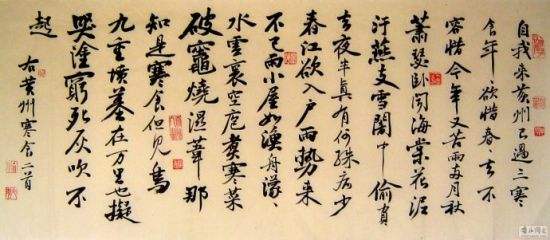 自我来黄州已過三寒
食年〻欲惜春〻去不
容惜今年又苦雨兩月秋
蕭瑟卧闻海棠花泥
汙燕支雪闇中偷負
去夜半真有何殊病少
春江欲入户雨勢来
不已雨小屋如漁舟濛〻
水雲裏空庖煮寒菜
破竈燒濕葦那
知是寒食但见烏
九重墳墓在万里也擬
哭塗窮死灰吹不
起
右黄州寒食二首